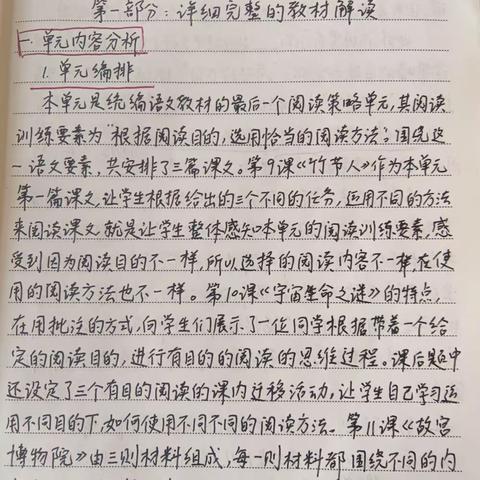 第一部分：详细完整的教材解读
一.单元内容分析
1.单元编排
本单元是统编语文教材的最后一个阅读策略单元,其阅读
训练要素为"根据阅读目的,选用恰当的阅读方法";围绕这
一语文要素,共安排了三篇课文。第9课《竹节人》作为本单元
第一篇课文,让学生根据给出的三个不同的任务,运用不同的方法
来阅读课文,就是让学生整体感知本单元的阅读训练要素,感
受到因为阅读目的不一样,所以选择的阅读内容不一样,在使
用的阅读方法也不一样。第10课《宇宙生命之谜》的特点,
在用批注的方式,向学生们展示了一位同学根据带着一个给
定的阅读目的,进行有目的的阅读的思维过程。课后题中
还设定了三个有目的阅读的课内迁移活动,让学生自己学习运
用不同目的下,如何使用不同不同的阅读方法。第11课《故宫
博物院》由三则材料组成,每一则材料都围绕不同的内